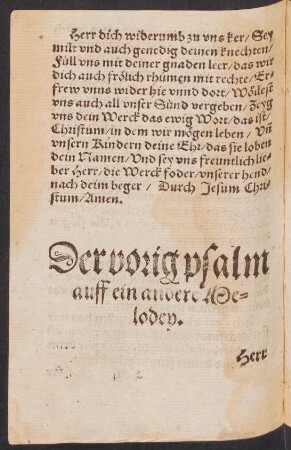 Herr dich widerumb zu vns ker/ Sey
milt vnd auch genedig deinen knechten/
Füll vns mit deiner gnaden leer/ das wir
dich auch frölich rhümen mit rechte/ Er-
frew vnns wider hie vnnd dort/ Wöllest
vns auch all vnser Sünd vergeben/ Zeyg
vns dein Werck das ewig Wort/ das ist
Christum/ in dem wir mögen leben/ Vñ
vnsern Kindern deine Ehr/ das sie loben
dein Namen/ Vnd sey vns freuntlich lie-
ber Herr/ die Werck foder/ vnserer hend/
nach deim beger/ Durch Jesum Chri-
stum/ Amen.
Der vorig psalm
auff ein andere Me-
lodey.
Herr